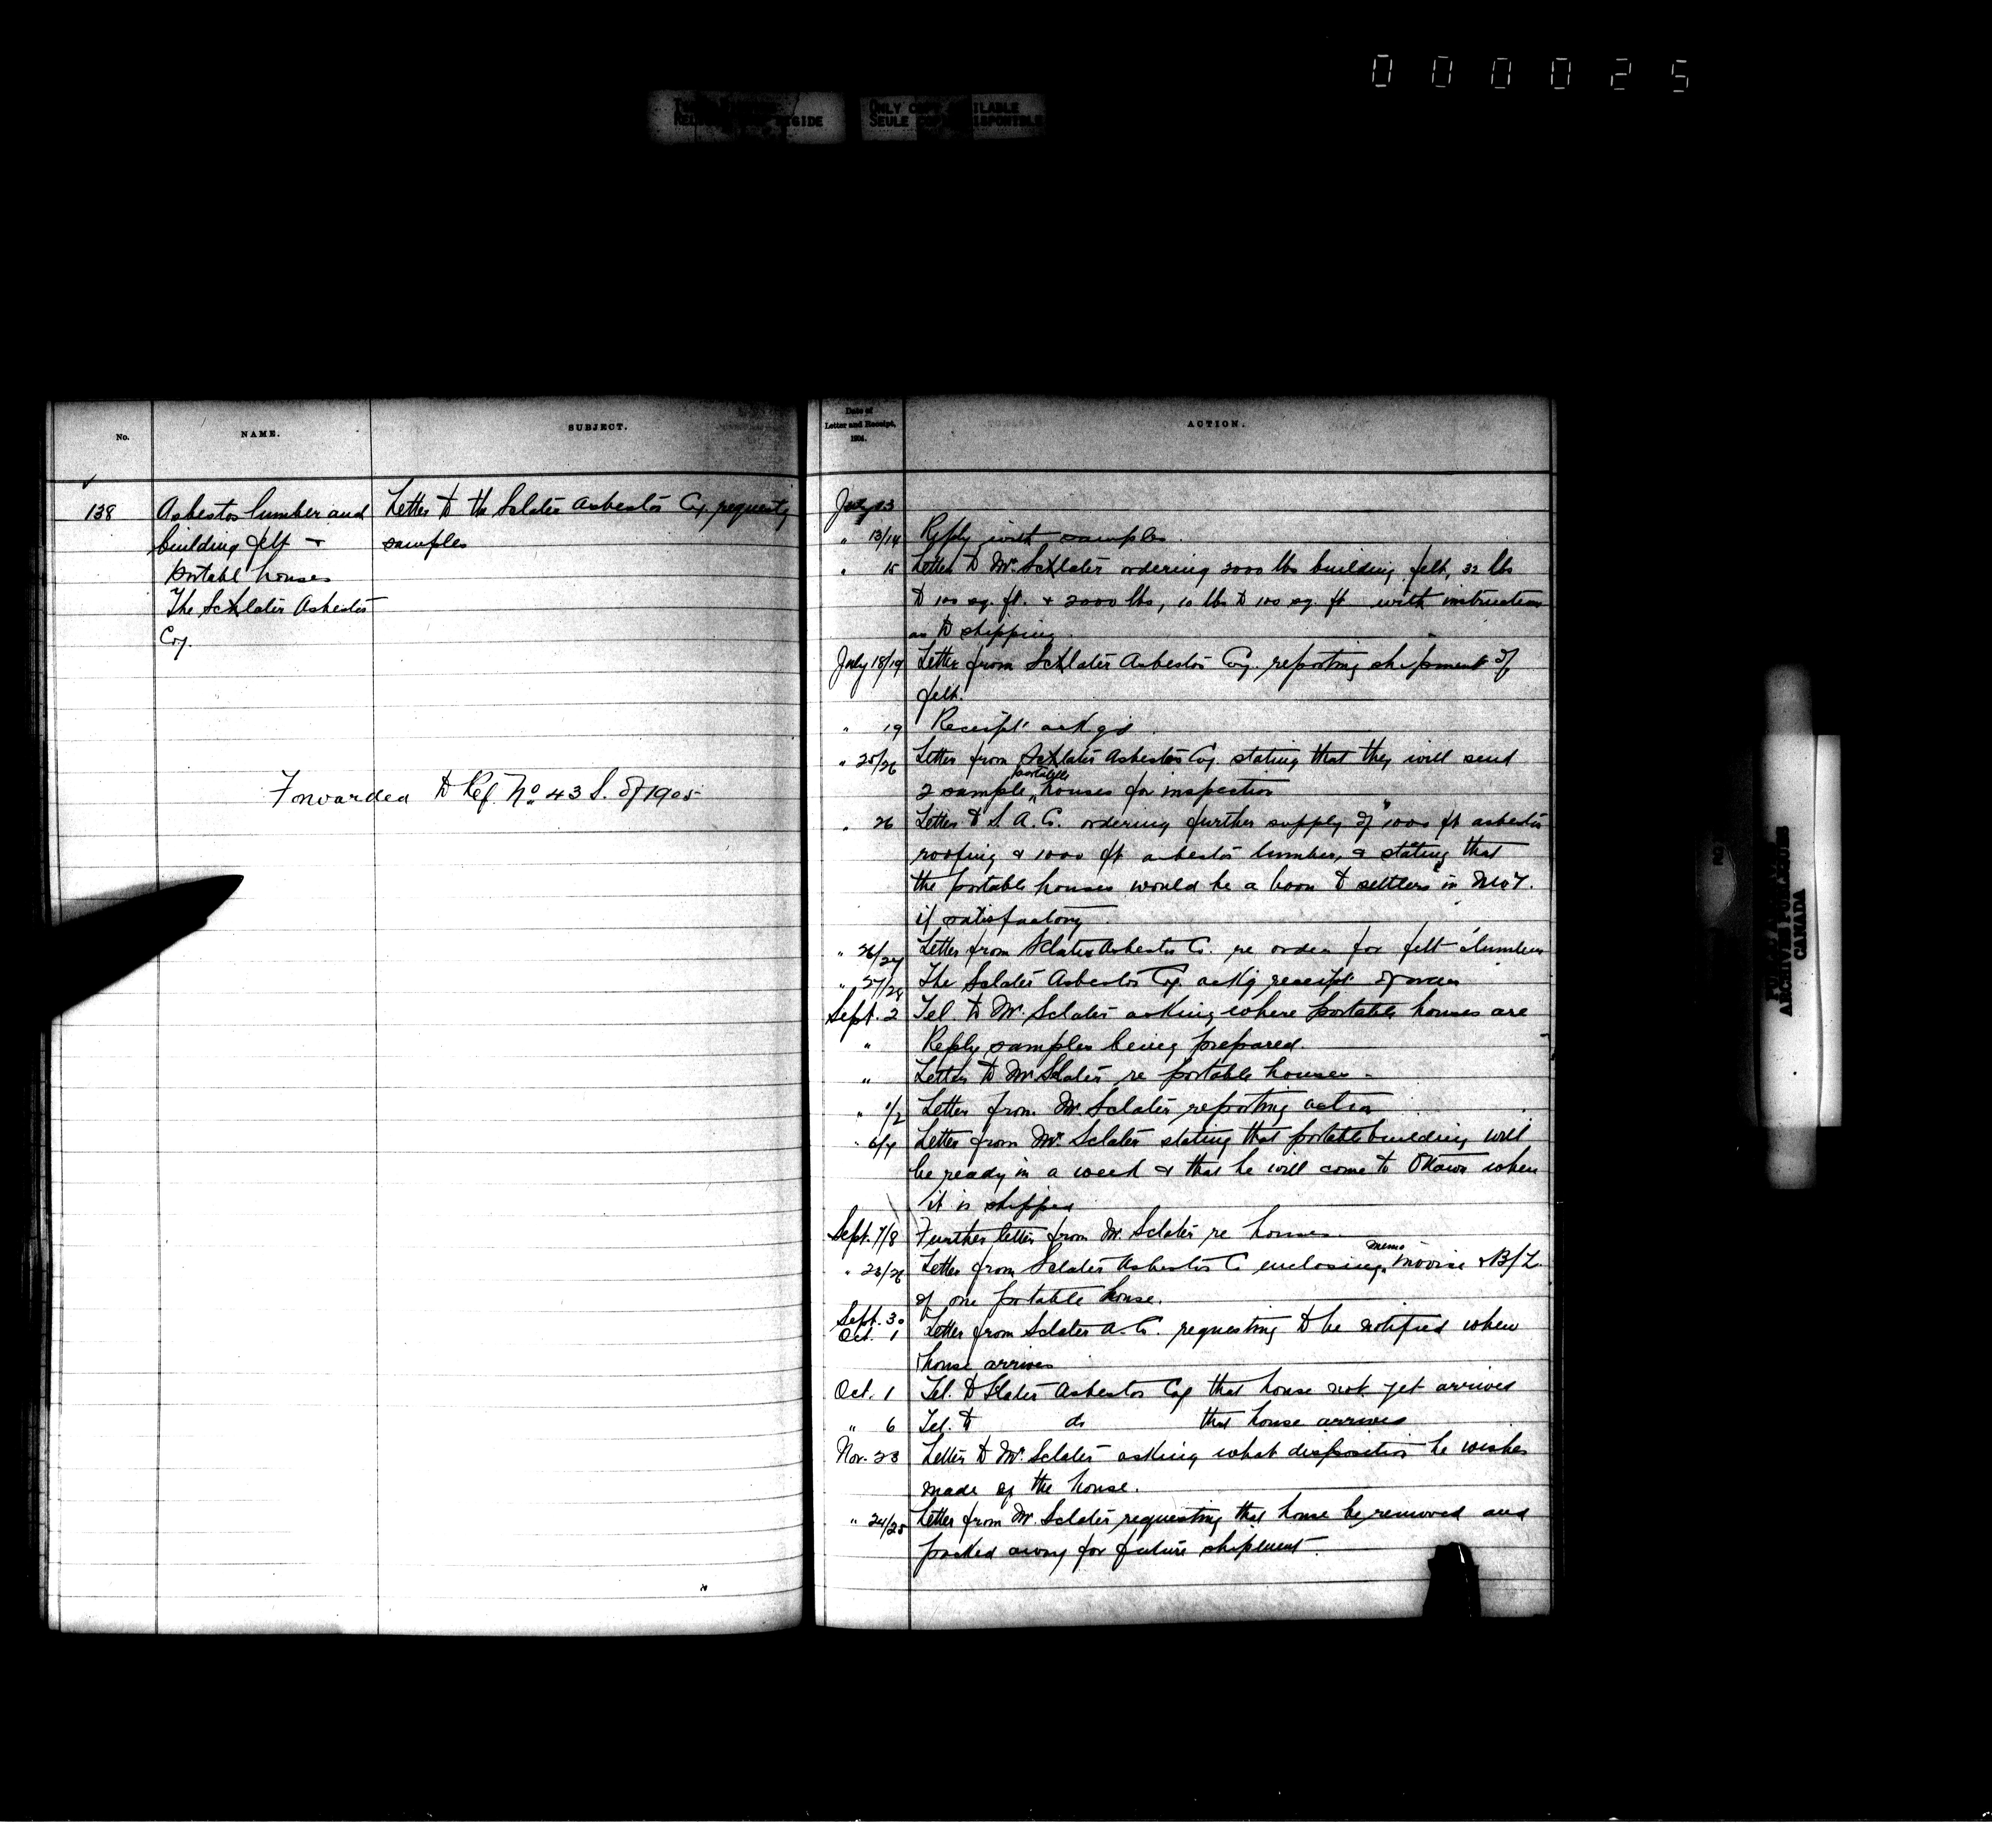 000025
ONLY COPY AVAILABLE
SEULE COPIE DISPONIBLE
No.
NAME.
SUBJECT.
138
Asbestos lumber and
building felt &
portabl houses
The Sclater Asbestos
Coy.
Letter to the Sclater Asbestos Coy. requestg
samples
Forwarded to Ref. No 43 S. of 1905
Date of
Letter and Receipt,
1904.
ACTION.
July 13
" 13/14 Reply with samples.
" 15 Letter to Mr. Sclater ordering 2000 lbs building felt, 32 lbs
to 100 sq. ft. & 2000 lbs, 10 lbs to 100 sq. ft with instructions
as to shipping.
July 18/19 Letter from Sclater Asbestos Coy. reporting shipment of
felt.
" 19 Receipt ackgd.
" 25/26 Letter from Sclater Asbestos Coy stating that they will send
2 sample portable houses for inspection
" 26 Letter to S. A. C. ordering further supply of 1000 ft asbestos
roofing & 1000 ft asbestos lumber, & stating that
the portable houses would be a boon to settlers in NWT.
if satisfactory.
" 26/27 Letter from Sclater Asbestos C. re order for felt & lumber
" 27/28 The Sclater Asbestos Coy. ackg receipt of order
Sept. 2 Tel. to Mr. Sclater asking where portable houses are
" Reply samples being prepared.
" Letter to Mr Sclater re portable houses -
" 1/2 Letter from Mr. Sclater reporting action
" 6/7 Letter from Mr. Sclater stating that portable building will
be ready in a week & that he will come to Ottawa when
it is shipped
Sept. 7/8 Further letter from Mr. Sclater re houses.
" 23/26 Letter from Sclater Asbestos C enclosing memo invoice & B/L.
of one portable house.
Sept. 30
Oct. 1 Letter from Sclater A. C. requesting to be notified when
house arrives
Oct. 1 Tel. to Sclater Asbestos Coy that house not yet arrived
" 6 Tel. to do that house arrived
Nov. 23 Letter to Mr. Sclater asking what disposition he wishes
made of the house.
" 24/25 Letter from Mr. Sclater requesting that house be removed and
packed away for future shipment.
PUBLIC ARCHIVES
ARCHIVES PUBLIQUES
CANADA